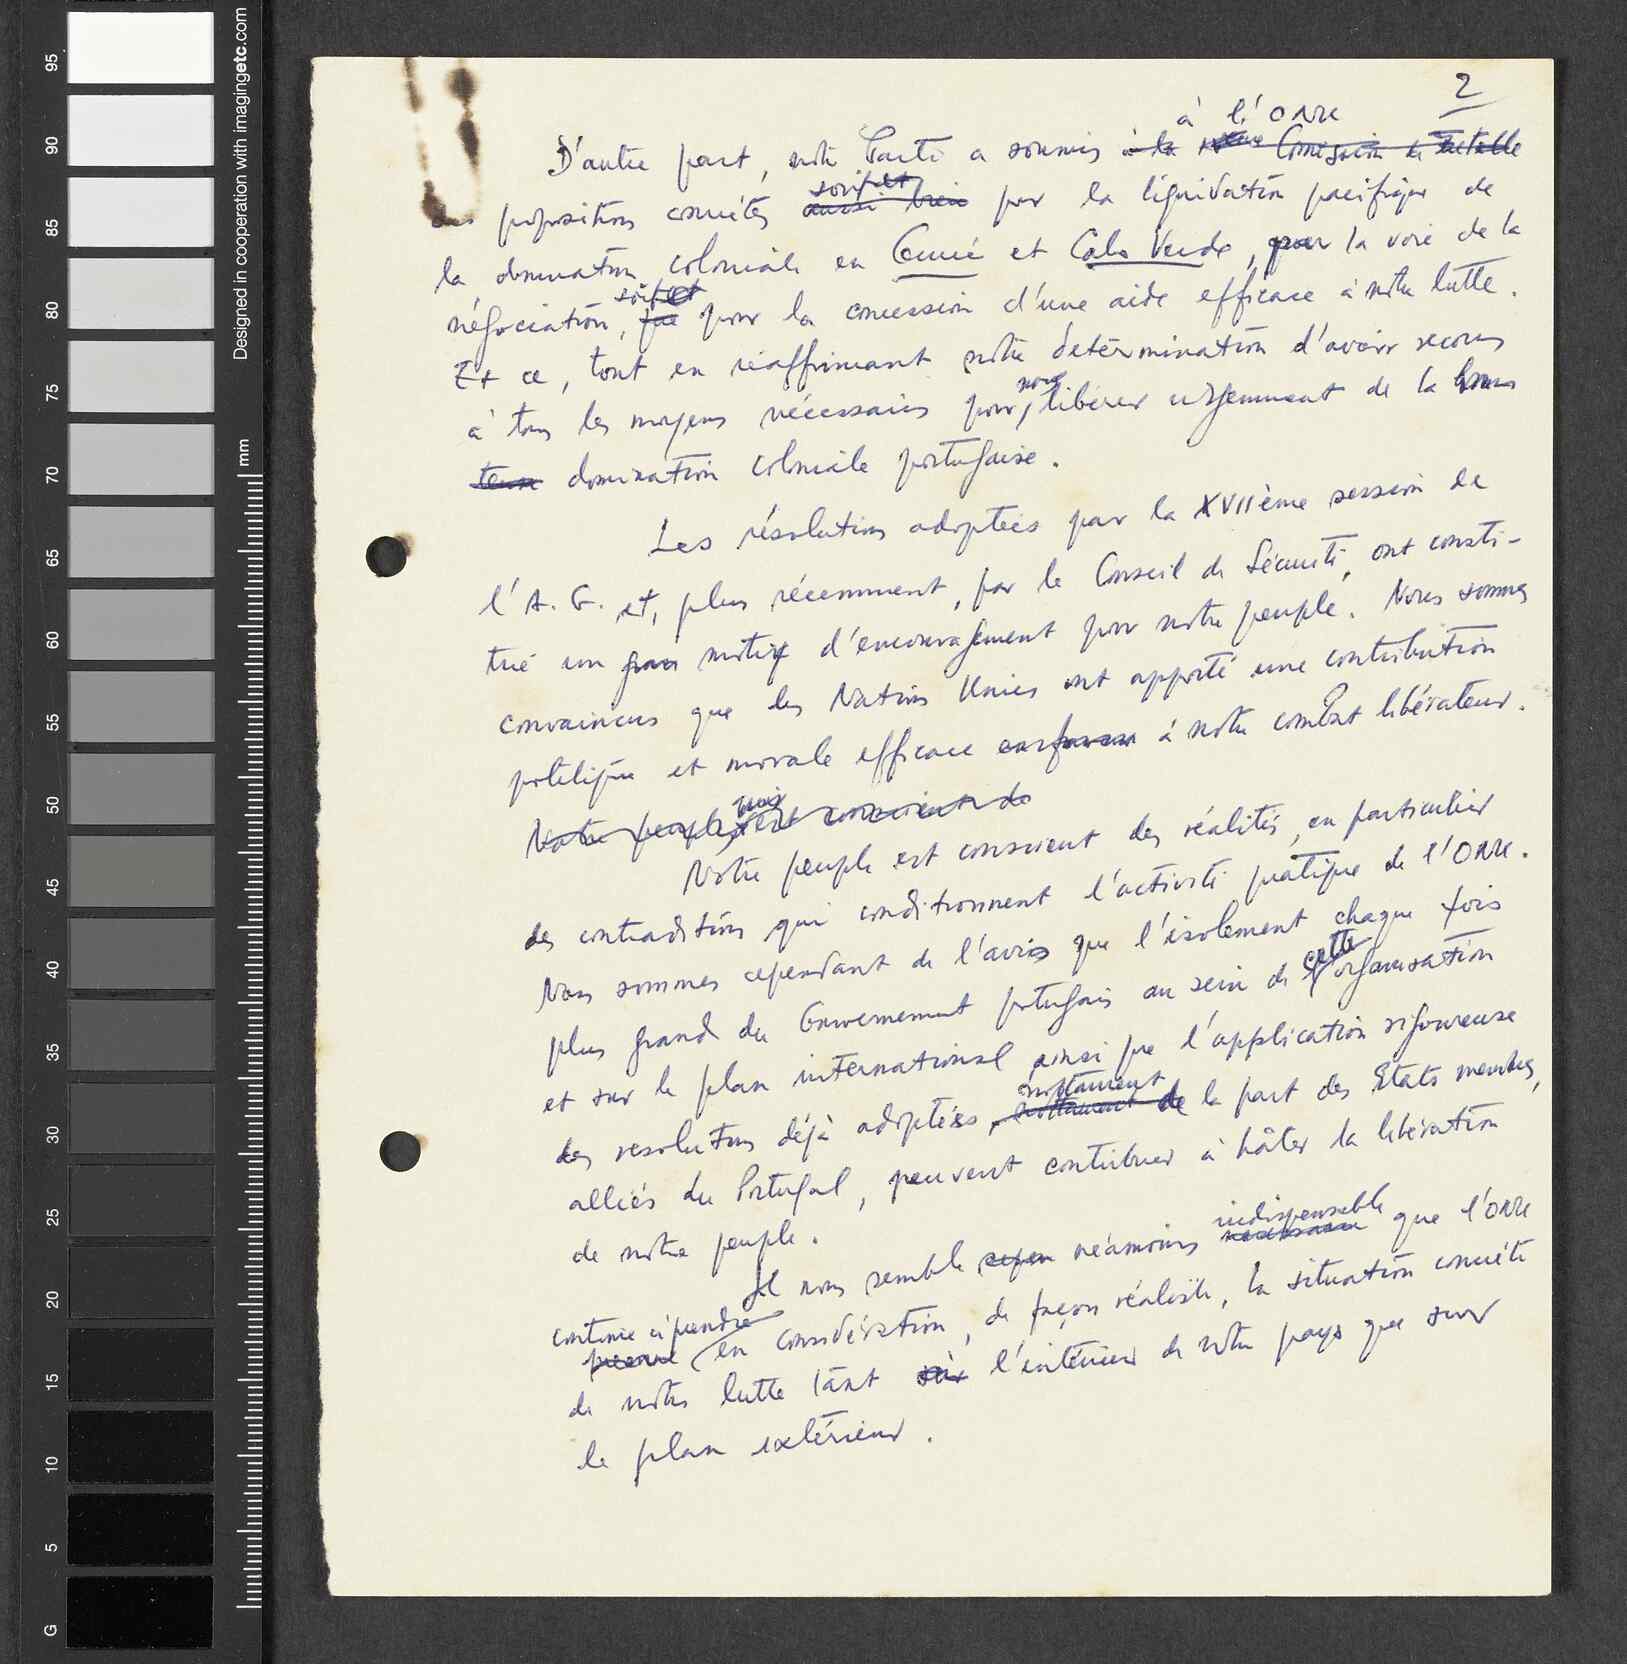 2
à l'ONU
D'autre part, notre Parti a soumis à la Comission de tutelle
des propositions concrètes aussi bien par la liquidation pacifique de
la domination coloniale en Guiné et Cabo Verde, par la voie de la
négociation, que pour la concession d'une aide efficace à notre lutte.
Et ce, tout en réaffirmant notre détermination d'avoir recours
à tous les moyens nécessaires pour nous libérer urgemment de la
domination coloniale portugaise.
Les résolutions adoptées par la XVIIème session de
l'A.G. et, plus récemment, par le Conseil de Sécurité, ont consti-
tué un motif d'encouragement pour notre peuple. Nous sommes
convaincus que les Nations Unies ont apporté une contribution
politique et morale efficace à notre combat libérateur.
Notre peuple est conscient de
Notre peuple est conscient des réalités, en particulier
des contraditions qui conditionnent l'activité pratique de l'ONU.
Nous sommes cependant de l'avis que l'isolement chaque fois
plus grand du Gouvernement portugais au sein de cette organisation
et sur le plan international ainsi que l'application rigoureuse
des resolutions déjà adoptées, notamment de la part des Etats membres,
alliés du Portugal, peuvent contribuer à hâter la libération
de notre peuple.
Il nous semble néamoins indispensable que l'ONU
continue à prendre en considération, de façon réaliste, la situation concrète
de notre lutte tant à l'intérieur de notre pays que sur
le plan extérieur.
Designed in cooperation with imagingetc.com
mm
95
90
85
80
75
70
65
60
55
50
45
40
35
30
25
20
15
10
5
G